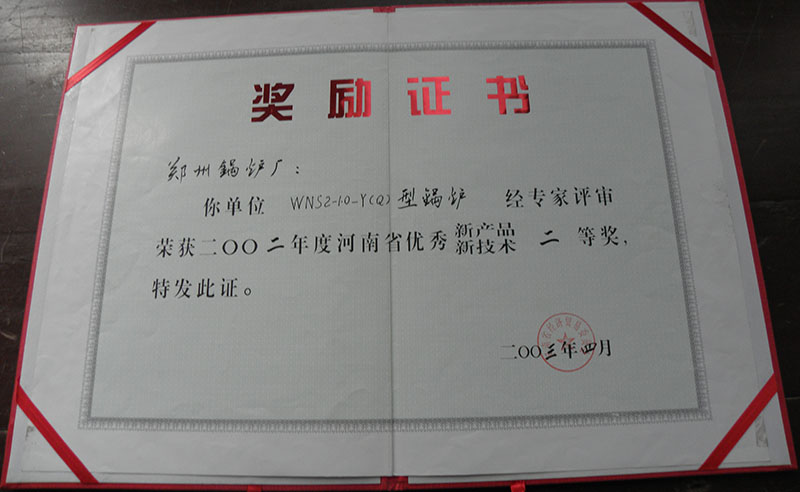 奖励证书
郑州锅炉厂：
你单位 WNS2-1.0-Y(Q)型锅炉 经专家评审
荣获二〇〇二年度河南省优秀新产品 新技术 二等奖，
特发此证。
二〇〇三年四月